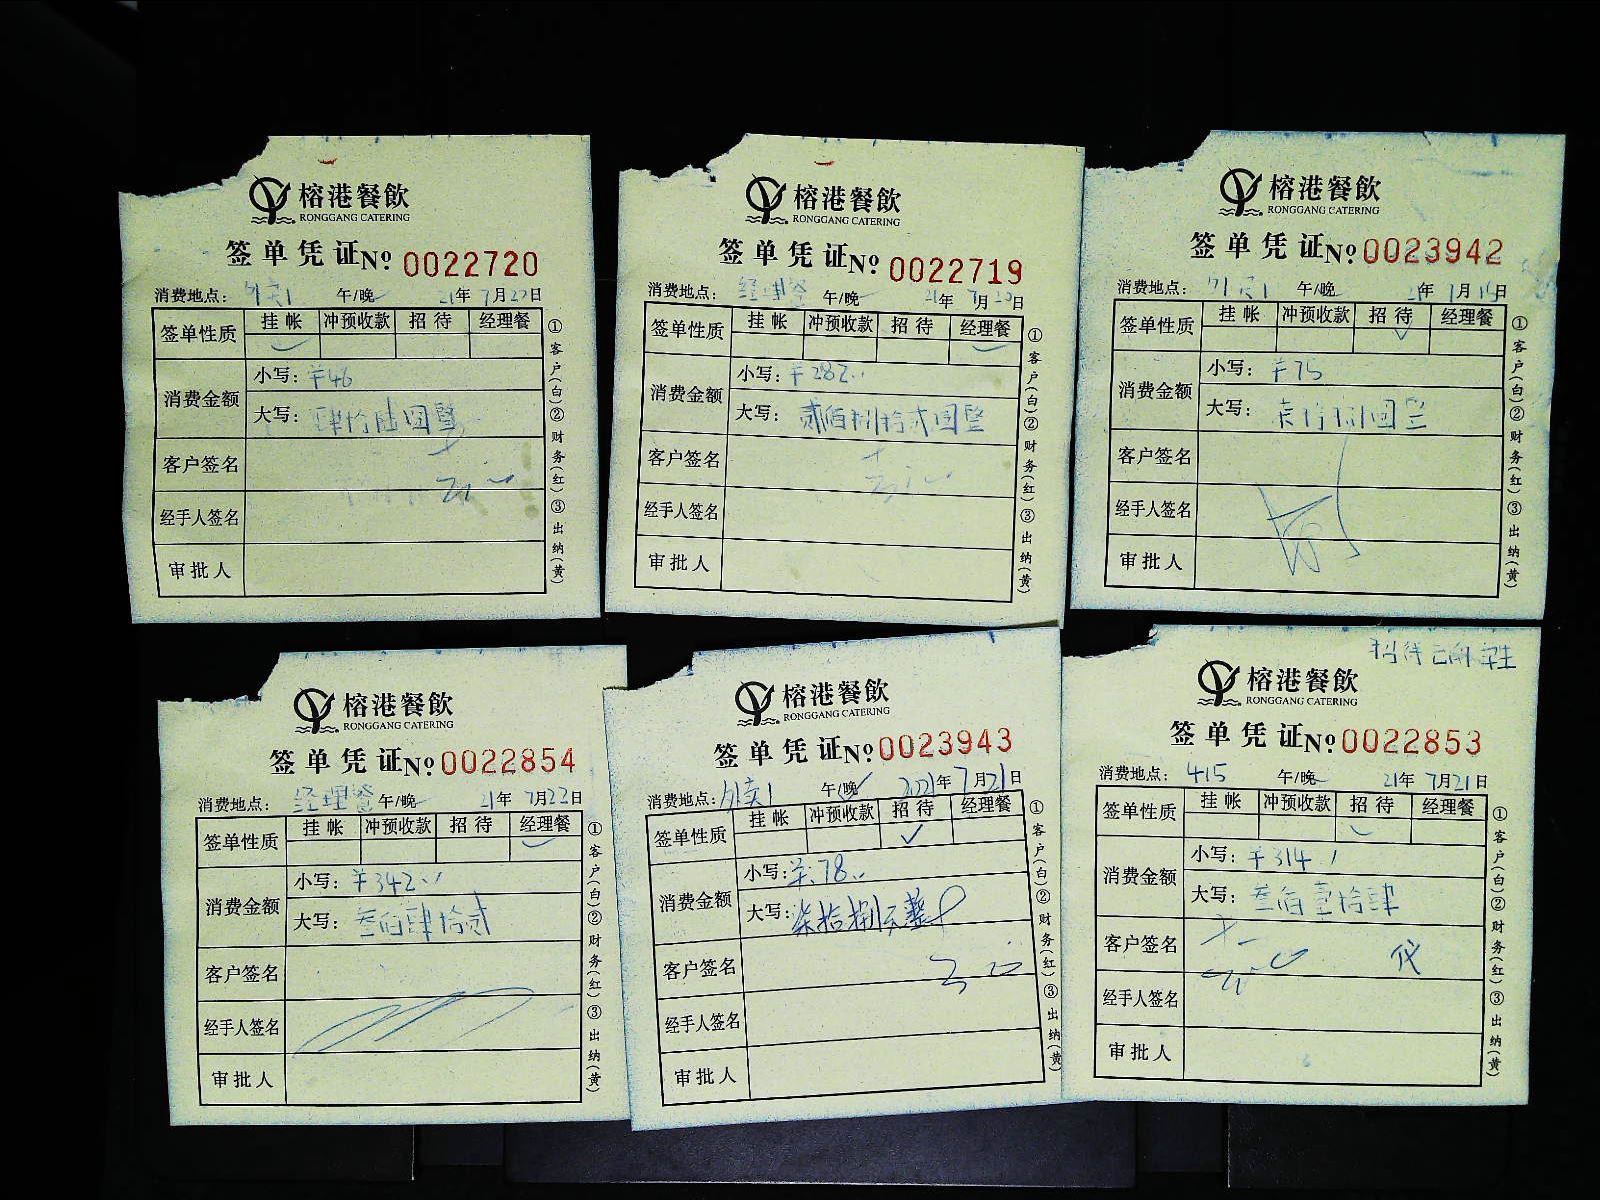 榕港餐飲
RONGGANG CATERING
签单凭证№ 0022720
消费地点：外卖1 午/晚 21年7月20日
签单性质 挂帐 冲预收款 招待 经理餐
消费金额
小写：¥46
大写：肆拾陆圆整
客户签名
经手人签名
审批人
①客户(白)②财务(红)③出纳(黄)
榕港餐飲
RONGGANG CATERING
签单凭证№ 0022719
消费地点：经理餐 午/晚 21年7月20日
签单性质 挂帐 冲预收款 招待 经理餐
消费金额
小写：¥282..
大写：贰佰捌拾贰圆整
客户签名
经手人签名
审批人
①客户(白)②财务(红)③出纳(黄)
榕港餐飲
RONGGANG CATERING
签单凭证№ 0023942
消费地点：外卖1 午/晚 21年7月 日
签单性质 挂帐 冲预收款 招待 经理餐
消费金额
小写：¥
大写：
客户签名
经手人签名
审批人
①客户(白)②财务(红)③出纳(黄)
榕港餐飲
RONGGANG CATERING
签单凭证№ 0022854
消费地点：经理餐 午/晚 21年7月22日
签单性质 挂帐 冲预收款 招待 经理餐
消费金额
小写：¥342..
大写：叁佰肆拾贰
客户签名
经手人签名
审批人
①客户(白)②财务(红)③出纳(黄)
榕港餐飲
RONGGANG CATERING
签单凭证№ 0023943
消费地点：外卖1 午/晚 2021年7月21日
签单性质 挂帐 冲预收款 招待 经理餐
消费金额
小写：¥:78..
大写：柒拾捌元整
客户签名
经手人签名
审批人
①客户(白)②财务(红)③出纳(黄)
招待
榕港餐飲
RONGGANG CATERING
签单凭证№ 0022853
消费地点：415 午/晚 21年7月21日
签单性质 挂帐 冲预收款 招待 经理餐
消费金额
小写：¥314
大写：叁佰壹拾肆
客户签名
经手人签名
审批人
①客户(白)②财务(红)③出纳(黄)